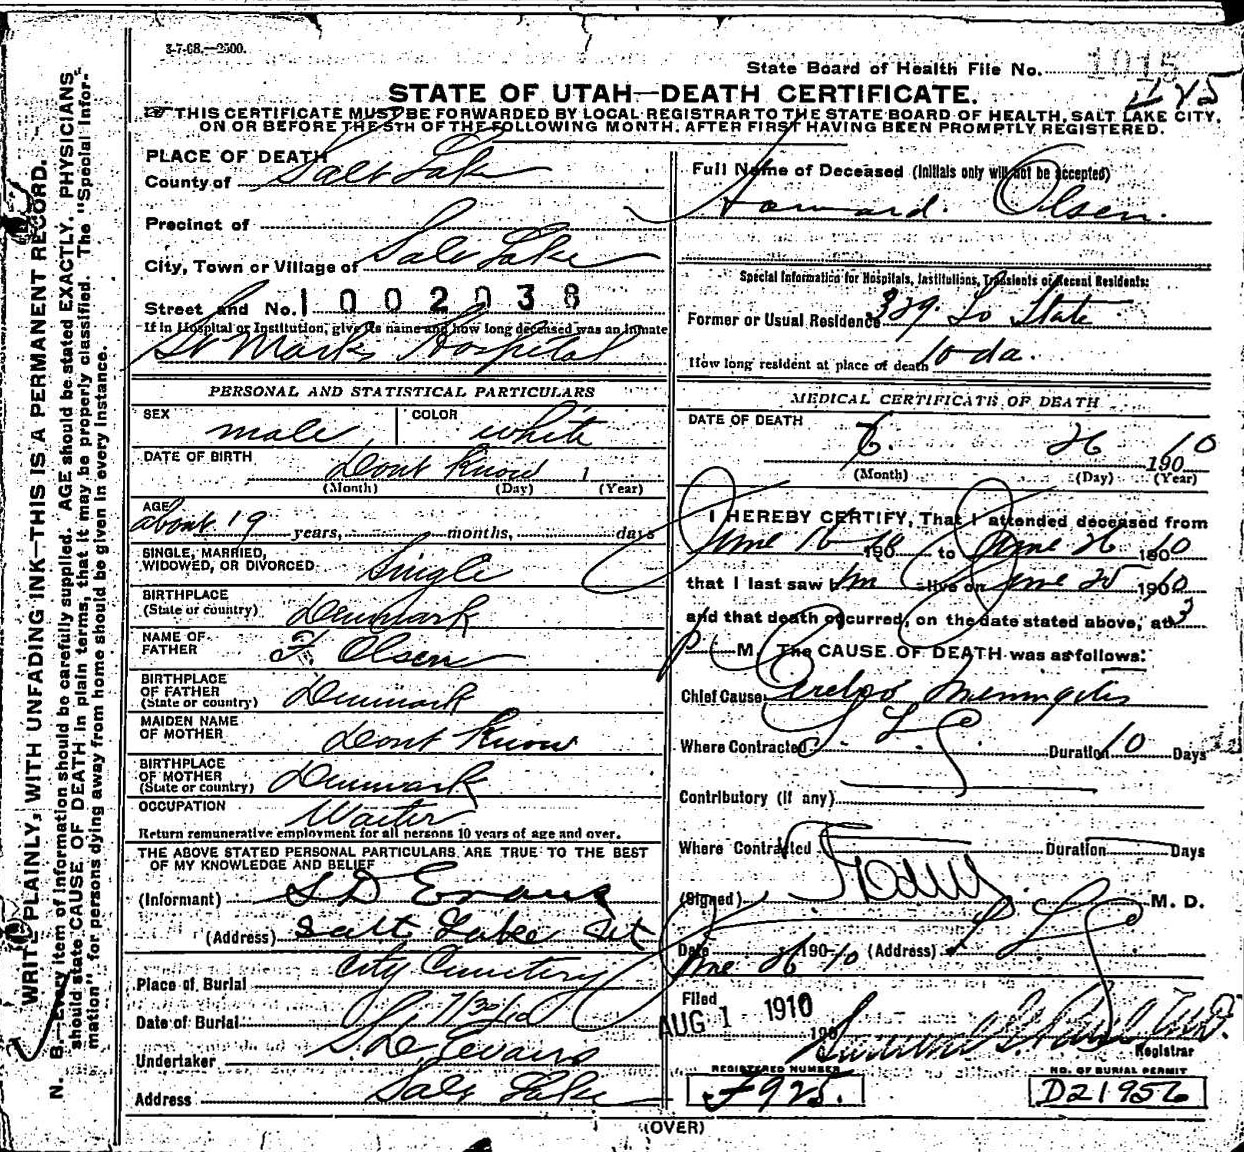 3-7-08.—2500.
State Board of Health File No. 1015
485
STATE OF UTAH—DEATH CERTIFICATE.
THIS CERTIFICATE MUST BE FORWARDED BY LOCAL REGISTRAR TO THE STATE BOARD OF HEALTH, SALT LAKE CITY,
ON OR BEFORE THE 5TH OF THE FOLLOWING MONTH, AFTER FIRST HAVING BEEN PROMPTLY REGISTERED.
WRITE PLAINLY, WITH UNFADING INK—THIS IS A PERMANENT RECORD.
N. B.—Every item of information should be carefully supplied. AGE should be stated EXACTLY. PHYSICIANS
should state CAUSE OF DEATH in plain terms, that it may be properly classified. The "Special Infor-
mation" for persons dying away from home should be given in every instance.
PLACE OF DEATH
County of Salt Lake
Precinct of
City, Town or Village of Salt Lake
Street and No. 1002038
If in Hospital or Institution, give its name and how long deceased was an inmate
St Marks Hospital
PERSONAL AND STATISTICAL PARTICULARS
SEX male COLOR white
DATE OF BIRTH Dont Know 1
(Month) (Day) (Year)
AGE about 19 years, months, days
SINGLE, MARRIED,
WIDOWED, OR DIVORCED Single
BIRTHPLACE
(State or country) Denmark
NAME OF
FATHER F. Olsen
BIRTHPLACE
OF FATHER
(State or country) Denmark
MAIDEN NAME
OF MOTHER Dont Know
BIRTHPLACE
OF MOTHER
(State or country) Denmark
OCCUPATION Waiter
Return remunerative employment for all persons 10 years of age and over.
THE ABOVE STATED PERSONAL PARTICULARS ARE TRUE TO THE BEST
OF MY KNOWLEDGE AND BELIEF
(Informant) S D Evans
(Address) Salt Lake
Place of Burial City Cemetery
Date of Burial 7/30/10
Undertaker S. D. Evans
Address Salt Lake
Full Name of Deceased (Initials only will not be accepted)
Howard. Olsen.
Special Information for Hospitals, Institutions, Transients or Recent Residents:
Former or Usual Residence 329. So State
How long resident at place of death 10 da.
MEDICAL CERTIFICATE OF DEATH
DATE OF DEATH
6. 26 1910
(Month) (Day) (Year)
I HEREBY CERTIFY, That I attended deceased from
June 16 190 10 to June 26 190 10
that I last saw him alive on June 25 1910
and that death occurred, on the date stated above, at 3
P M. The CAUSE OF DEATH was as follows:
Chief Cause Cerebro Meningitis
Where Contracted S. L. C. Duration 10 Days
Contributory (if any)
Where Contracted Duration Days
(Signed) M. D.
Date June 26 190-10 (Address) S L C
Filed AUG 1 1910
190
Registrar
REGISTERED NUMBER
F925.
NO. OF BURIAL PERMIT
D21956
(OVER)